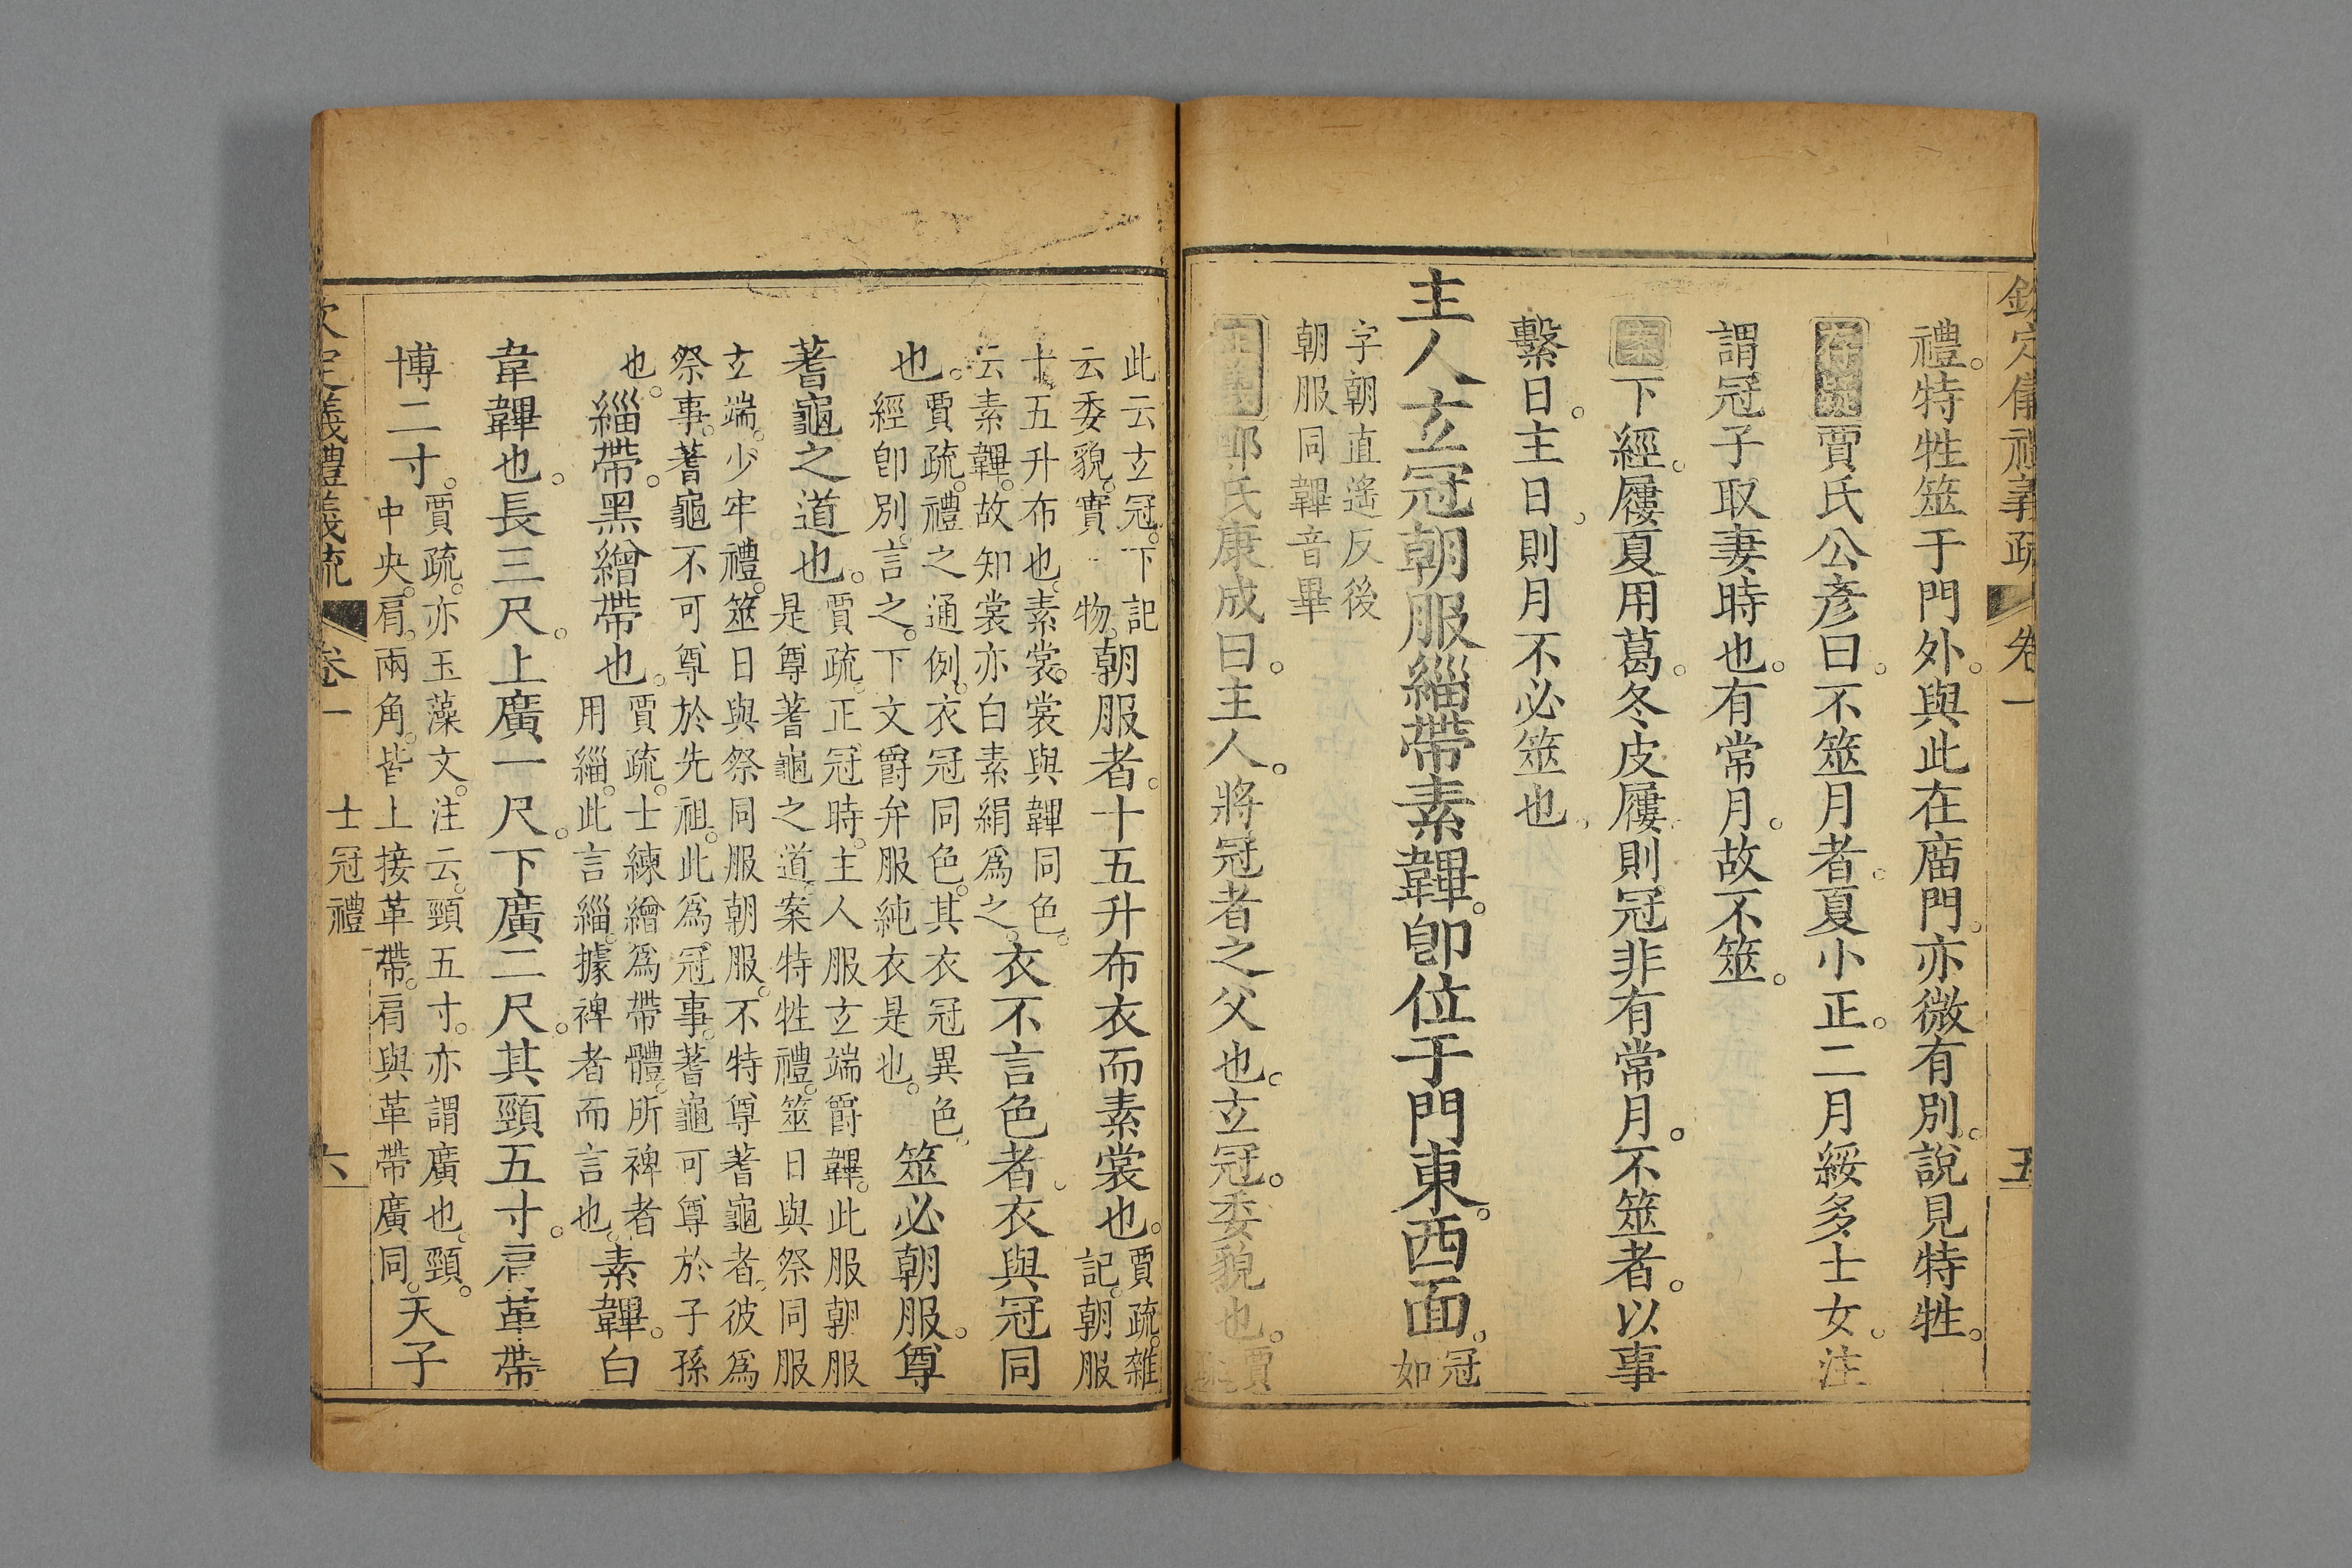 欽定儀禮義疏 卷一 五
禮。特牲筮于門外。與此在庿門。亦微有別。說見特牲。
存疑 賈氏公彥曰。不筮月者。夏小正。二月綏多士女。注
謂冠子取妻時也。有常月。故不筮。
案 下經。屨夏用葛。冬皮屨。則冠非有常月。不筮者。以事
繫日。主日。則月不必筮也。
主人玄冠朝服緇帶素韠。卽位于門東。西面。冠
如
字朝直遙反後
朝服同韠音畢
正義 鄭氏康成曰。主人。將冠者之父也。玄冠。委貌也。賈
疏
此云玄冠。下記
云委貌。實物。
朝服者。十五升布衣而素裳也。
賈疏。雜
記。朝服
十五升布也。素裳。裳與韠同色。
云素韠。故知裳亦白素絹爲之。
衣不言色者。衣與冠同
也。
賈疏。禮之通例。衣冠同色。其衣冠異色。
經卽別言之。下文爵弁服純衣是也。
筮必朝服。尊
蓍龜之道也。
賈疏。正冠時。主人服玄端爵韠。此服朝服
是尊蓍龜之道。案特牲禮。筮日與祭同服
玄端。少牢禮。筮日與祭同服朝服。不特尊蓍龜者。彼爲
祭事。蓍龜不可尊於先祖。此爲冠事。蓍龜可尊於子孫
也。
緇帶。黑繒帶也。
賈疏。士練繒爲帶體。所裨者
用緇。此言緇。據裨者而言也。
素韠。白
韋韠也。長三尺。上廣一尺。下廣二尺。其頸五寸。肩革帶
博二寸。
賈疏。亦玉藻文。注云。頸五寸。亦謂廣也。頸。
中央。肩。兩角。皆上接革帶。肩與革帶廣同。
天子
欽定儀禮義疏 卷一 士冠禮 六